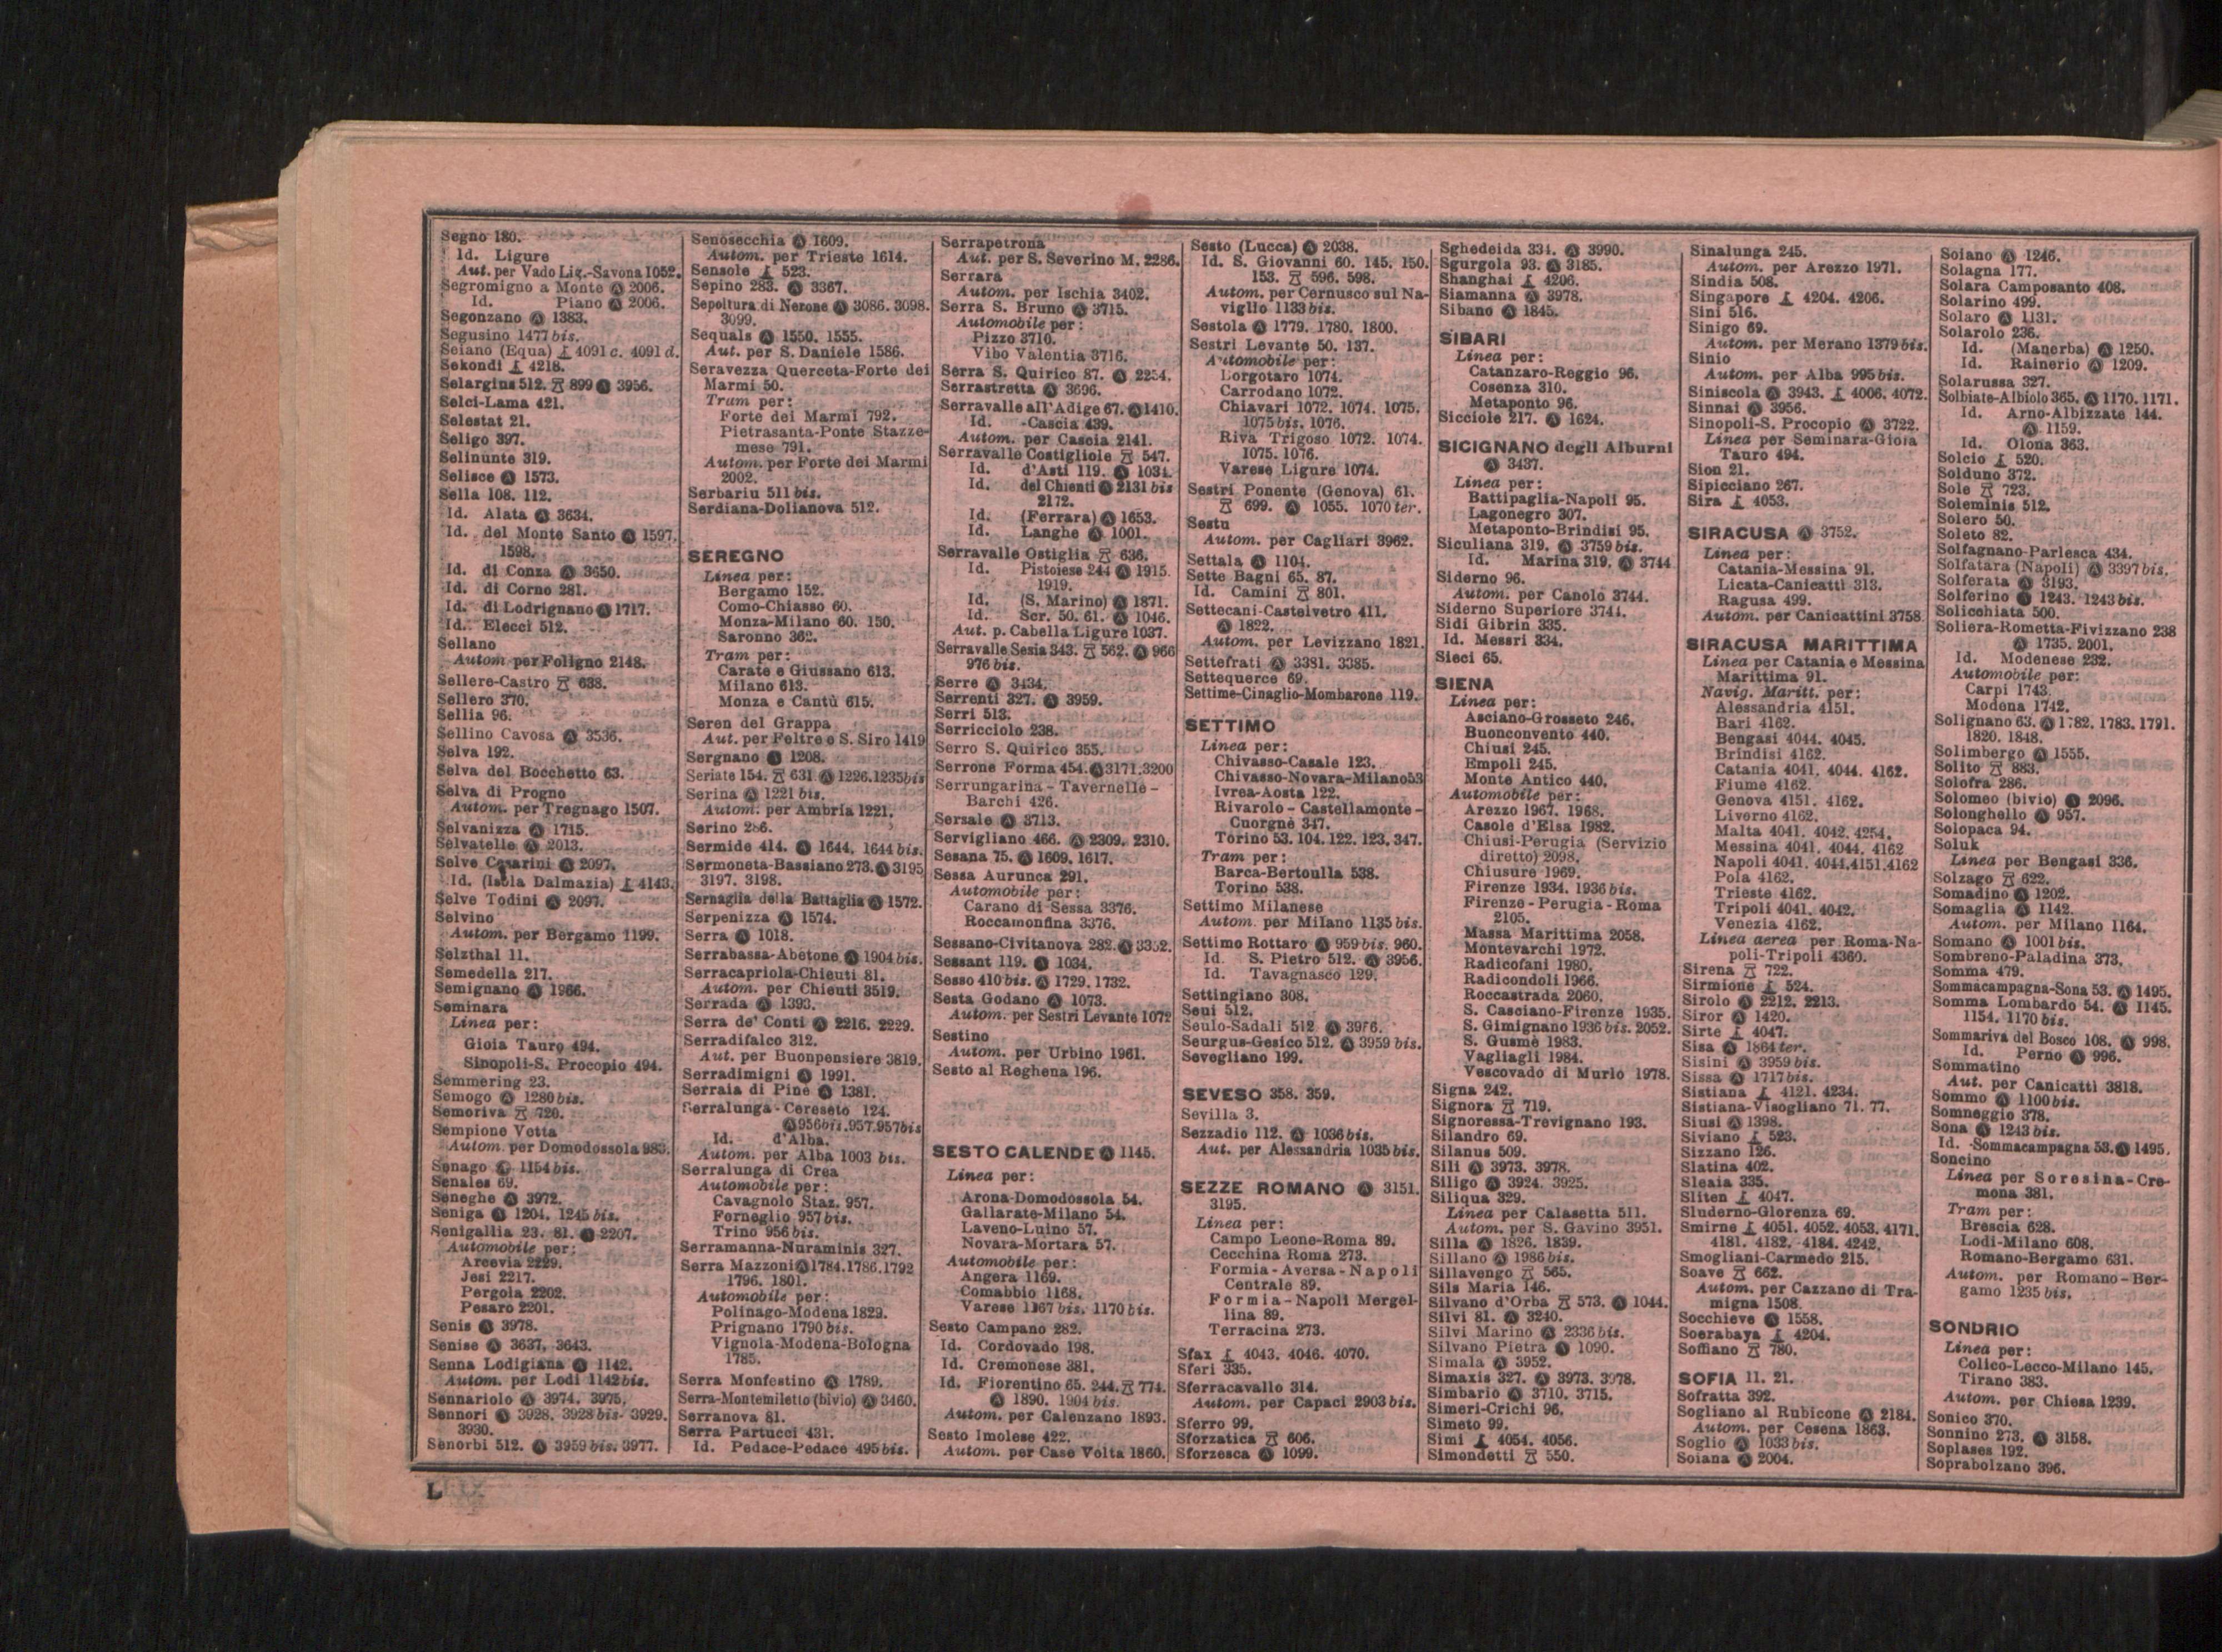 Segno 180.
Id. Ligure
Aut. per Vado Lig.-Savona 1052.
Segromigno a Monte Ⓐ 2006.
Id. Piano Ⓐ 2006.
Segonzano Ⓐ 1383.
Segusino 1477 bis.
Seiano (Equa) 4091 c. 4091 d.
Sekondi 4218.
Selargius 512. 899 Ⓐ 3956.
Selci-Lama 421.
Selestat 21.
Seligo 397.
Selinunte 319.
Selisce Ⓐ 1573.
Sella 108. 112.
Id. Alata Ⓐ 3634.
Id. del Monte Santo Ⓐ 1597.
1598.
Id. di Conza Ⓐ 3650.
Id. di Corno 281.
Id. di Lodrignano Ⓐ 1717.
Id. Elecci 512.
Sellano
Autom. per Foligno 2148.
Sellere-Castro 638.
Sellero 370.
Sellia 96.
Sellino Cavosa Ⓐ 3536.
Selva 192.
Selva del Bocchetto 63.
Selva di Progno
Autom. per Tregnago 1507.
Selvanizza Ⓐ 1715.
Selvatelle Ⓐ 2013.
Selve Cesarini Ⓐ 2097.
Id. (Isola Dalmazia) 4143.
Selve Todini Ⓐ 2097.
Selvino
Autom. per Bergamo 1199.
Selzthal 11.
Semedella 217.
Semignano Ⓐ 1966.
Seminara
Linea per:
Gioia Tauro 494.
Sinopoli-S. Procopio 494.
Semmering 23.
Semogo Ⓐ 1280 bis.
Semoriva 720.
Sempione Vetta
Autom. per Domodossola 983.
Senago Ⓐ 1154 bis.
Senales 69.
Seneghe Ⓐ 3972.
Seniga Ⓐ 1204. 1245 bis.
Senigallia 23. 81. Ⓐ 2207.
Automobile per:
Arcevia 2229.
Jesi 2217.
Pergola 2202.
Pesaro 2201.
Senis Ⓐ 3978.
Senise Ⓐ 3637. 3643.
Senna Lodigiana Ⓐ 1142.
Autom. per Lodi 1142 bis.
Sennariolo Ⓐ 3974. 3975.
Sennori Ⓐ 3928. 3928 bis- 3929.
3930.
Senorbi 512. Ⓐ 3959 bis. 3977.
Senosecchia Ⓐ 1609.
Autom. per Trieste 1614.
Sensole 523.
Sepino 283. Ⓐ 3367.
Sepoltura di Nerone Ⓐ 3086. 3098.
3099.
Sequals Ⓐ 1550. 1555.
Aut. per S. Daniele 1586.
Seravezza Querceta-Forte dei
Marmi 50.
Tram per:
Forte dei Marmi 792.
Pietrasanta-Ponte Stazze-
mese 791.
Autom. per Forte dei Marmi
2002.
Serbariu 511 bis.
Serdiana-Dolianova 512.
SEREGNO
Linea per:
Bergamo 152.
Como-Chiasso 60.
Monza-Milano 60. 150.
Saronno 362.
Tram per:
Carate e Giussano 613.
Milano 613.
Monza e Cantù 615.
Seren del Grappa
Aut. per Feltre e S. Siro 1419
Sergnano Ⓐ 1208.
Seriate 154. 631 Ⓐ 1226.1235 bis
Serina Ⓐ 1221 bis.
Autom. per Ambria 1221.
Serino 286.
Sermide 414. Ⓐ 1644. 1644 bis.
Sermoneta-Bassiano 273. Ⓐ 3195
3197. 3198.
Sernaglia della Battaglia Ⓐ 1572.
Serpenizza Ⓐ 1574.
Serra Ⓐ 1018.
Serrabassa-Abetone Ⓐ 1904 bis.
Serracapriola-Chieuti 81.
Autom. per Chieuti 3519.
Serrada Ⓐ 1393.
Serra de' Conti Ⓐ 2216. 2229.
Serradifalco 312.
Aut. per Buonpensiere 3819.
Serradimigni Ⓐ 1991.
Serraia di Pinè Ⓐ 1381.
Serralunga-Cereseto 124.
Ⓐ 956 bis. 957. 957 bis
Id. d'Alba.
Autom. per Alba 1003 bis.
Serralunga di Crea
Automobile per:
Cavagnolo Staz. 957.
Forneglio 957 bis.
Trino 956 bis.
Serramanna-Nuraminis 327.
Serra Mazzoni Ⓐ 1784.1786.1792
1796. 1801.
Automobile per:
Polinago-Modena 1829.
Prignano 1790 bis.
Vignola-Modena-Bologna
1785.
Serra Monfestino Ⓐ 1789.
Serra-Montemiletto (bivio) Ⓐ 3460.
Serranova 81.
Serra Partucci 431.
Id. Pedace-Pedace 495 bis.
Serrapetrona
Aut. per S. Severino M. 2286.
Serrara
Autom. per Ischia 3402.
Serra S. Bruno Ⓐ 3715.
Automobile per:
Pizzo 3710.
Vibo Valentia 3716.
Serra S. Quirico 87. Ⓐ 2254.
Serrastretta Ⓐ 3696.
Serravalle all'Adige 67. Ⓐ 1410.
Id. -Cascia 439.
Autom. per Cascia 2141.
Serravalle Costigliole 547.
Id. d'Asti 119. Ⓐ 1034.
Id. del Chienti Ⓐ 2131 bis
2172.
Id. (Ferrara) Ⓐ 1653.
Id. Langhe Ⓐ 1001.
Serravalle Ostiglia 636.
Id. Pistoiese 244 Ⓐ 1915.
1919.
Id. (S. Marino) Ⓐ 1871.
Id. Scr. 50. 61. Ⓐ 1046.
Aut. p. Cabella Ligure 1037.
Serravalle Sesia 343. 562. Ⓐ 966
976 bis.
Serre Ⓐ 3434.
Serrenti 327. Ⓐ 3959.
Serri 513.
Serricciolo 238.
Serro S. Quirico 355.
Serrone Forma 454. Ⓐ 3171.3200
Serrungarina - Tavernelle -
Barchi 426.
Sersale Ⓐ 3713.
Servigliano 466. Ⓐ 2309. 2310.
Sesana 75. Ⓐ 1609. 1617.
Sessa Aurunca 291.
Automobile per:
Carano di Sessa 3376.
Roccamonfina 3376.
Sessano-Civitanova 282. Ⓐ 3352.
Sessant 119. Ⓐ 1034.
Sesso 410 bis. Ⓐ 1729. 1732.
Sesta Godano Ⓐ 1073.
Autom. per Sestri Levante 1072
Sestino
Autom. per Urbino 1961.
Sesto al Reghena 196.
SESTO CALENDE Ⓐ 1145.
Linea per:
Arona-Domodossola 54.
Gallarate-Milano 54.
Laveno-Luino 57.
Novara-Mortara 57.
Automobile per:
Angera 1169.
Comabbio 1168.
Varese 1167 bis. 1170 bis.
Sesto Campano 282.
Id. Cordovado 198.
Id. Cremonese 381.
Id. Fiorentino 65. 244. 774.
Ⓐ 1890. 1904 bis.
Autom. per Calenzano 1893.
Sesto Imolese 422.
Autom. per Case Volta 1860.
Sesto (Lucca) Ⓐ 2038.
Id. S. Giovanni 60. 145. 150.
153. 596. 598.
Autom. per Cernusco sul Na-
viglio 1133 bis.
Sestola Ⓐ 1779. 1780. 1800.
Sestri Levante 50. 137.
Automobile per:
Borgotaro 1074.
Carrodano 1072.
Chiavari 1072. 1074. 1075.
1075 bis. 1076.
Riva Trigoso 1072. 1074.
1075. 1076.
Varese Ligure 1074.
Sestri Ponente (Genova) 61.
699. Ⓐ 1055. 1070 ter.
Sestu
Autom. per Cagliari 3962.
Settala Ⓐ 1104.
Sette Bagni 65. 87.
Id. Camini 801.
Settecani-Castelvetro 411.
Ⓐ 1822.
Autom. per Levizzano 1821.
Settefrati Ⓐ 3381. 3385.
Settequerce 69.
Settime-Cinaglio-Mombarone 119.
SETTIMO
Linea per:
Chivasso-Casale 123.
Chivasso-Novara-Milano 53
Ivrea-Aosta 122.
Rivarolo - Castellamonte -
Cuorgnè 347.
Torino 53. 104. 122. 123. 347.
Tram per:
Barca-Bertoulla 538.
Torino 538.
Settimo Milanese
Autom. per Milano 1135 bis.
Settimo Rottaro Ⓐ 959 bis. 960.
Id. S. Pietro 512. Ⓐ 3956.
Id. Tavagnasco 129.
Settingiano 308.
Seui 512.
Seulo-Sadali 512. Ⓐ 3976.
Seurgus-Gesico 512. Ⓐ 3959 bis.
Sevegliano 199.
SEVESO 358. 359.
Sevilla 3.
Sezzadio 112. Ⓐ 1036 bis.
Aut. per Alessandria 1035 bis.
SEZZE ROMANO Ⓐ 3151.
3195.
Linea per:
Campo Leone-Roma 89.
Cecchina Roma 273.
Formia-Aversa-Napoli
Centrale 89.
Formia-Napoli Mergel-
lina 89.
Terracina 273.
Sfax 4043. 4046. 4070.
Sferi 335.
Sferracavallo 314.
Autom. per Capaci 2903 bis.
Sferro 99.
Sforzatica 606.
Sforzesca Ⓐ 1099.
Sghedeida 334. Ⓐ 3990.
Sgurgola 93. Ⓐ 3185.
Shanghai 4206.
Siamanna Ⓐ 3978.
Sibano Ⓐ 1845.
SIBARI
Linea per:
Catanzaro-Reggio 96.
Cosenza 310.
Metaponto 96.
Sicciole 217. Ⓐ 1624.
SICIGNANO degli Alburni
Ⓐ 3437.
Linea per:
Battipaglia-Napoli 95.
Lagonegro 307.
Metaponto-Brindisi 95.
Siculiana 319. Ⓐ 3759 bis.
Id. Marina 319. Ⓐ 3744
Siderno 96.
Autom. per Canolo 3744.
Siderno Superiore 3744.
Sidi Gibrin 335.
Id. Messri 334.
Sieci 65.
SIENA
Linea per:
Asciano-Grosseto 246.
Buonconvento 440.
Chiusi 245.
Empoli 245.
Monte Antico 440.
Automobile per:
Arezzo 1967. 1968.
Casole d'Elsa 1982.
Chiusi-Perugia (Servizio
diretto) 2098.
Chiusure 1969.
Firenze 1934. 1936 bis.
Firenze - Perugia - Roma
2105.
Massa Marittima 2058.
Montevarchi 1972.
Radicofani 1980.
Radicondoli 1966.
Roccastrada 2060.
S. Casciano-Firenze 1935.
S. Gimignano 1936 bis. 2052.
S. Gusmè 1983.
Vagliagli 1984.
Vescovado di Murlo 1978.
Signa 242.
Signora 719.
Signoressa-Trevignano 193.
Silandro 69.
Silanus 509.
Sili Ⓐ 3973. 3978.
Siligo Ⓐ 3924. 3925.
Siliqua 329.
Linea per Calasetta 511.
Autom. per S. Gavino 3951.
Silla Ⓐ 1826. 1839.
Sillano Ⓐ 1986 bis.
Sillavengo 565.
Sils Maria 146.
Silvano d'Orba 573. Ⓐ 1044.
Silvi 81. Ⓐ 3240.
Silvi Marino Ⓐ 2336 bis.
Silvano Pietra Ⓐ 1090.
Simala Ⓐ 3952.
Simaxis 327. Ⓐ 3973. 3978.
Simbario Ⓐ 3710. 3715.
Simeri-Crichi 96.
Simeto 99.
Simi 4054. 4056.
Simondetti 550.
Sinalunga 245.
Autom. per Arezzo 1971.
Sindia 508.
Singapore 4204. 4206.
Sini 516.
Sinigo 69.
Autom. per Merano 1379 bis.
Sinio
Autom. per Alba 995 bis.
Siniscola Ⓐ 3943. 4006. 4072.
Sinnai Ⓐ 3956.
Sinopoli-S. Procopio Ⓐ 3722.
Linea per Seminara-Gioia
Tauro 494.
Sion 21.
Sipicciano 267.
Sira 4053.
SIRACUSA Ⓐ 3752.
Linea per:
Catania-Messina 91.
Licata-Canicattì 313.
Ragusa 499.
Autom. per Canicattini 3758
SIRACUSA MARITTIMA
Linea per Catania e Messina
Marittima 91.
Navig. Maritt. per:
Alessandria 4151.
Bari 4162.
Bengasi 4044. 4045.
Brindisi 4162.
Catania 4041. 4044. 4162.
Fiume 4162.
Genova 4151. 4162.
Livorno 4162.
Malta 4041. 4042. 4254.
Messina 4041. 4044. 4162
Napoli 4041. 4044.4151.4162
Pola 4162.
Trieste 4162.
Tripoli 4041. 4042.
Venezia 4162.
Linea aerea per Roma-Na-
poli-Tripoli 4360.
Sirena 722.
Sirmione 524.
Sirolo Ⓐ 2212. 2213.
Siror Ⓐ 1420.
Sirte 4047.
Sisa Ⓐ 1864 ter.
Sisini Ⓐ 3959 bis.
Sissa Ⓐ 1717 bis.
Sistiana 4121. 4234.
Sistiana-Visogliano 71. 77.
Siusi Ⓐ 1398.
Siviano 523.
Sizzano 126.
Slatina 402.
Sleaia 335.
Sliten 4047.
Sluderno-Glorenza 69.
Smirne 4051. 4052. 4053. 4171.
4181. 4182. 4184. 4242.
Smogliani-Carmedo 215.
Soave 662.
Autom. per Cazzano di Tra-
migna 1508.
Socchieve Ⓐ 1558.
Soerabaya 4204.
Soffiano 780.
SOFIA 11. 21.
Sofratta 392.
Sogliano al Rubicone Ⓐ 2184.
Autom. per Cesena 1863.
Soglio Ⓐ 1033 bis.
Soiana Ⓐ 2004.
Soiano Ⓐ 1246.
Solagna 177.
Solara Camposanto 408.
Solarino 499.
Solaro Ⓐ 1131.
Solarolo 236.
Id. (Manerba) Ⓐ 1250.
Id. Rainerio Ⓐ 1209.
Solarussa 327.
Solbiate-Albiolo 365. Ⓐ 1170. 1171.
Id. Arno-Albizzate 144.
Ⓐ 1159.
Id. Olona 363.
Solcio 520.
Solduno 372.
Sole 723.
Soleminis 512.
Solero 50.
Soleto 82.
Solfagnano-Parlesca 434.
Solfatara (Napoli) Ⓐ 3397 bis.
Solferata Ⓐ 3193.
Solferino Ⓐ 1243. 1243 bis.
Solicchiata 500.
Soliera-Rometta-Fivizzano 238
Ⓐ 1735. 2001.
Id. Modenese 232.
Automobile per:
Carpi 1743.
Modena 1742.
Solignano 63. Ⓐ 1782. 1783. 1791.
1820. 1848.
Solimbergo Ⓐ 1555.
Solito 883.
Solofra 286.
Solomeo (bivio) Ⓐ 2096.
Solonghello Ⓐ 957.
Solopaca 94.
Soluk
Linea per Bengasi 336.
Solzago 622.
Somadino Ⓐ 1202.
Somaglia Ⓐ 1142.
Autom. per Milano 1164.
Somano Ⓐ 1001 bis.
Sombreno-Paladina 373.
Somma 479.
Sommacampagna-Sona 53. Ⓐ 1495.
Somma Lombardo 54. Ⓐ 1145.
1154. 1170 bis.
Sommariva del Bosco 108. Ⓐ 998.
Id. Perno Ⓐ 996.
Sommatino
Aut. per Canicattì 3818.
Sommo Ⓐ 1100 bis.
Somneggio 378.
Sona Ⓐ 1243 bis.
Id. -Sommacampagna 53. Ⓐ 1495.
Soncino
Linea per Soresina-Cre-
mona 381.
Tram per:
Brescia 628.
Lodi-Milano 608.
Romano-Bergamo 631.
Autom. per Romano-Ber-
gamo 1235 bis.
SONDRIO
Linea per:
Colico-Lecco-Milano 145.
Tirano 383.
Autom. per Chiesa 1239.
Sonico 370.
Sonnino 273. Ⓐ 3158.
Soplases 192.
Soprabolzano 396.
L